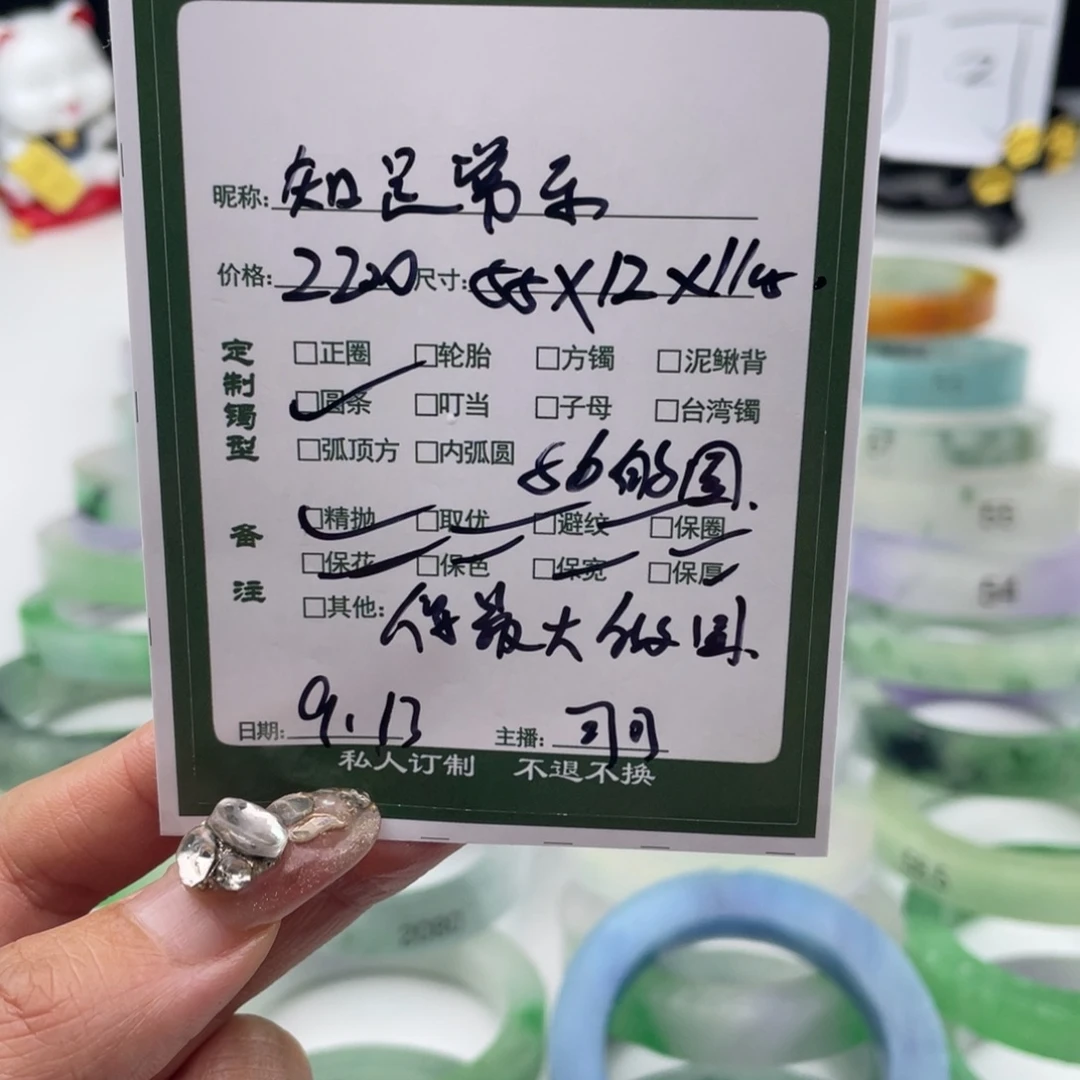 昵称: 知足常乐
价格: 2220 尺寸: 55X12X11.5
定制镯型
□正圈 □轮胎 □方镯 □泥鳅背
□圆条 □叮当 □子母 □台湾镯
□弧顶方 □内弧圆 56的圆.
备注
□精抛 □取优 □避纹 □保圈
□保花 □保色 □保宽 □保厚
□其他: 保最大做圆.
日期: 9.13 主播:
私人订制 不退不换
55
54